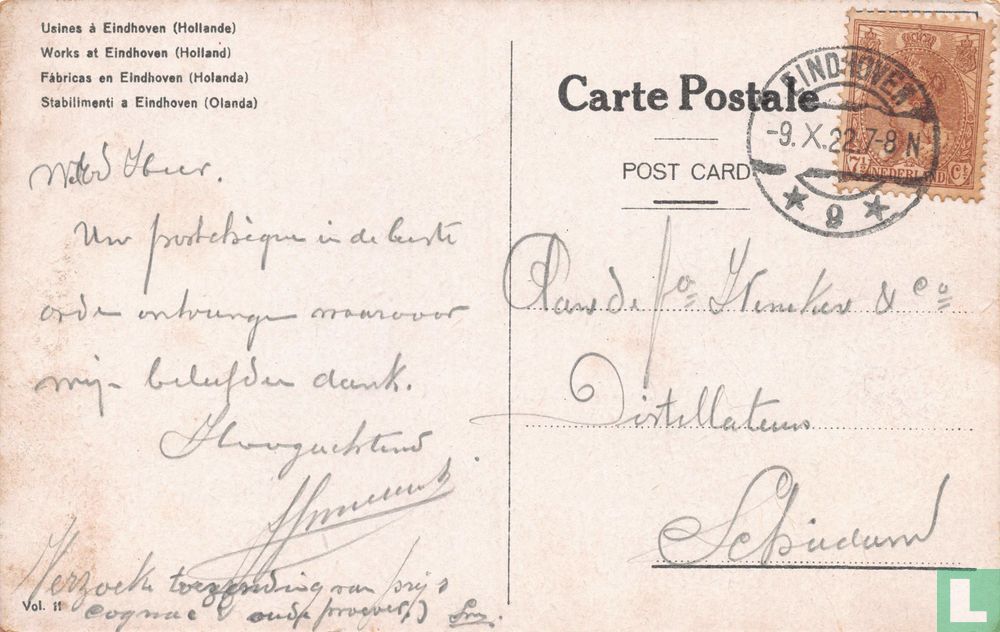 Usines à Eindhoven (Hollande)
Works at Eindhoven (Holland)
Fábricas en Eindhoven (Holanda)
Stabilimenti a Eindhoven (Olanda)
Carte Postale
POST CARD
EINDHOVEN
-9.X.22.7-8 N
9
7½ NEDERLAND Ct
WelEd Heer.
Uw postcheque in de beste
orde ontvangen waarvoor
mijn beleefden dank.
Hoogachtend
Verzoek toezending van prijs
cognac & oude
Aan de fa & Co
Distillateurs
Schiedam
Vol. II